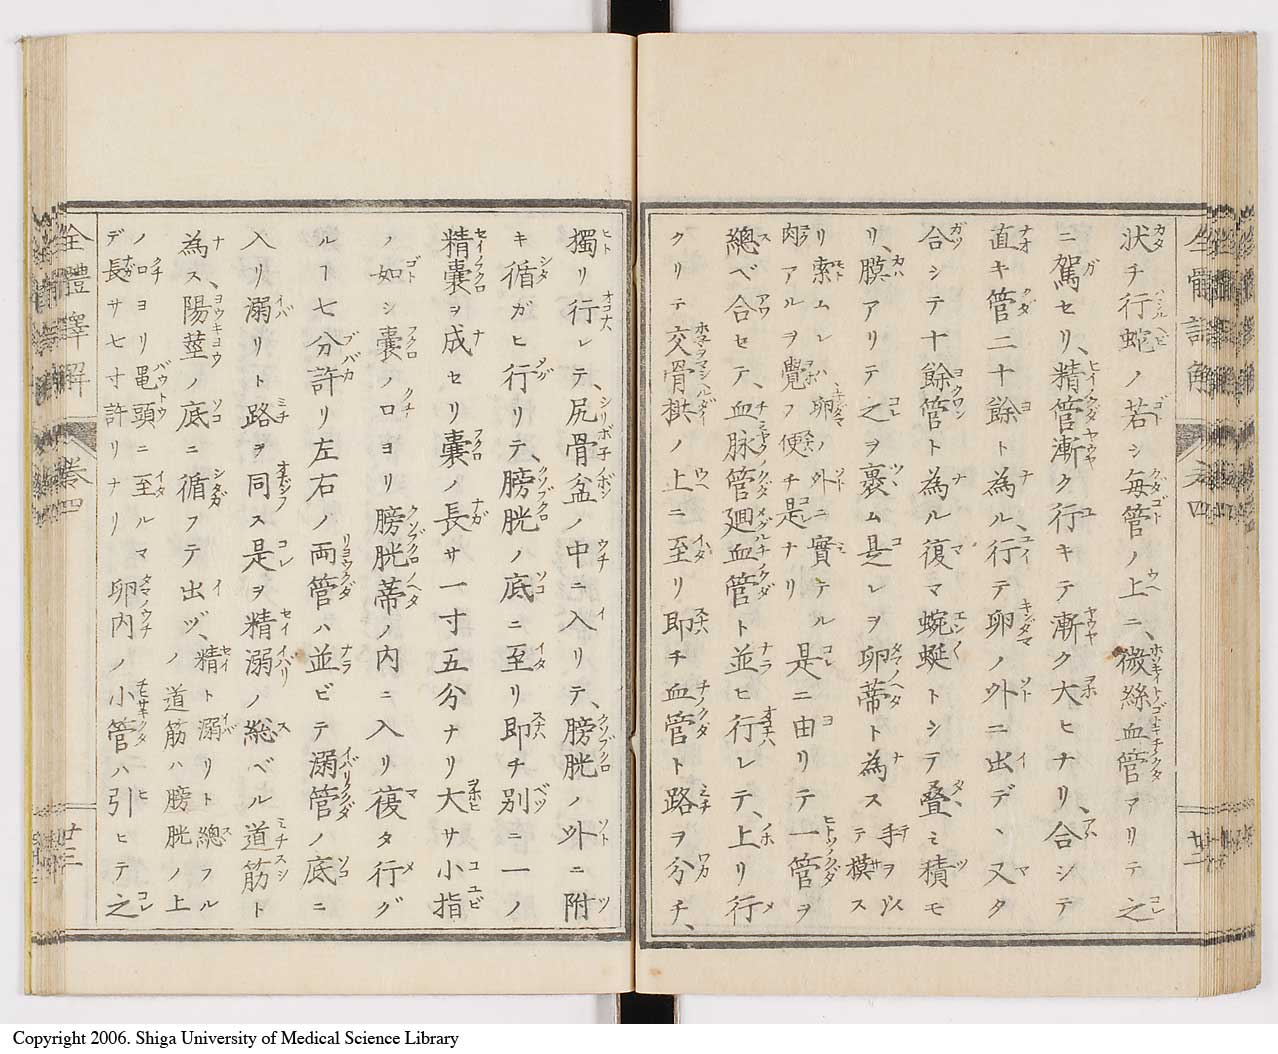 状チ行蛇ノ若シ毎管ノ上ニ、微絲血管アリテ之
ニ駕セリ、精管漸ク行キテ漸ク大ヒナリ、合シテ
直キ管二十餘ト為ル、行テ卵ノ外ニ出デ、又タ
合シテ十餘管ト為ル復マ蜿蜒トシテ叠ミ積モ
リ、膜アリテ之ヲ裹ム是レヲ卵蒂ト為ス
手ヲ以テ模ス
リ索ムレハ卵ノ外ニ實テル
肉アルヲ覺フ便チ是レナリ
是ニ由リテ一管ヲ
總ベ合セテ、血脉管廻血管ト並ヒ行レテ、上リ行
クリテ交骨栱ノ上ニ至リ即チ血管ト路ヲ分チ、
獨リ行レテ、尻骨盆ノ中ニ入リテ、膀胱ノ外ニ附
キ循ガヒ行リテ、膀胱ノ底ニ至リ即チ別ニ一ノ
精嚢ヲ成セリ嚢ノ長サ一寸五分ナリ大サ小指
ノ如シ嚢ノ口ヨリ膀胱蒂ノ内ニ入リ復タ行グ
ルー七分許リ左右ノ両管ハ並ビテ溺管ノ底ニ
入リ溺リト路ヲ同ス是ヲ精溺ノ総ベル道筋ト
為ス、陽莖ノ底ニ循フテ出ヅ、
精ト溺リト總フル
ノ道筋ハ膀胱ノ上
ノ口ヨリ黽頭ニ至ルマ
デ長サ七寸許リナリ
卵内ノ小管ハ引ヒテ之
全體譯解
巻四
廿三
巻四
廿二
Copyright 2006. Shiga University of Medical Science Library